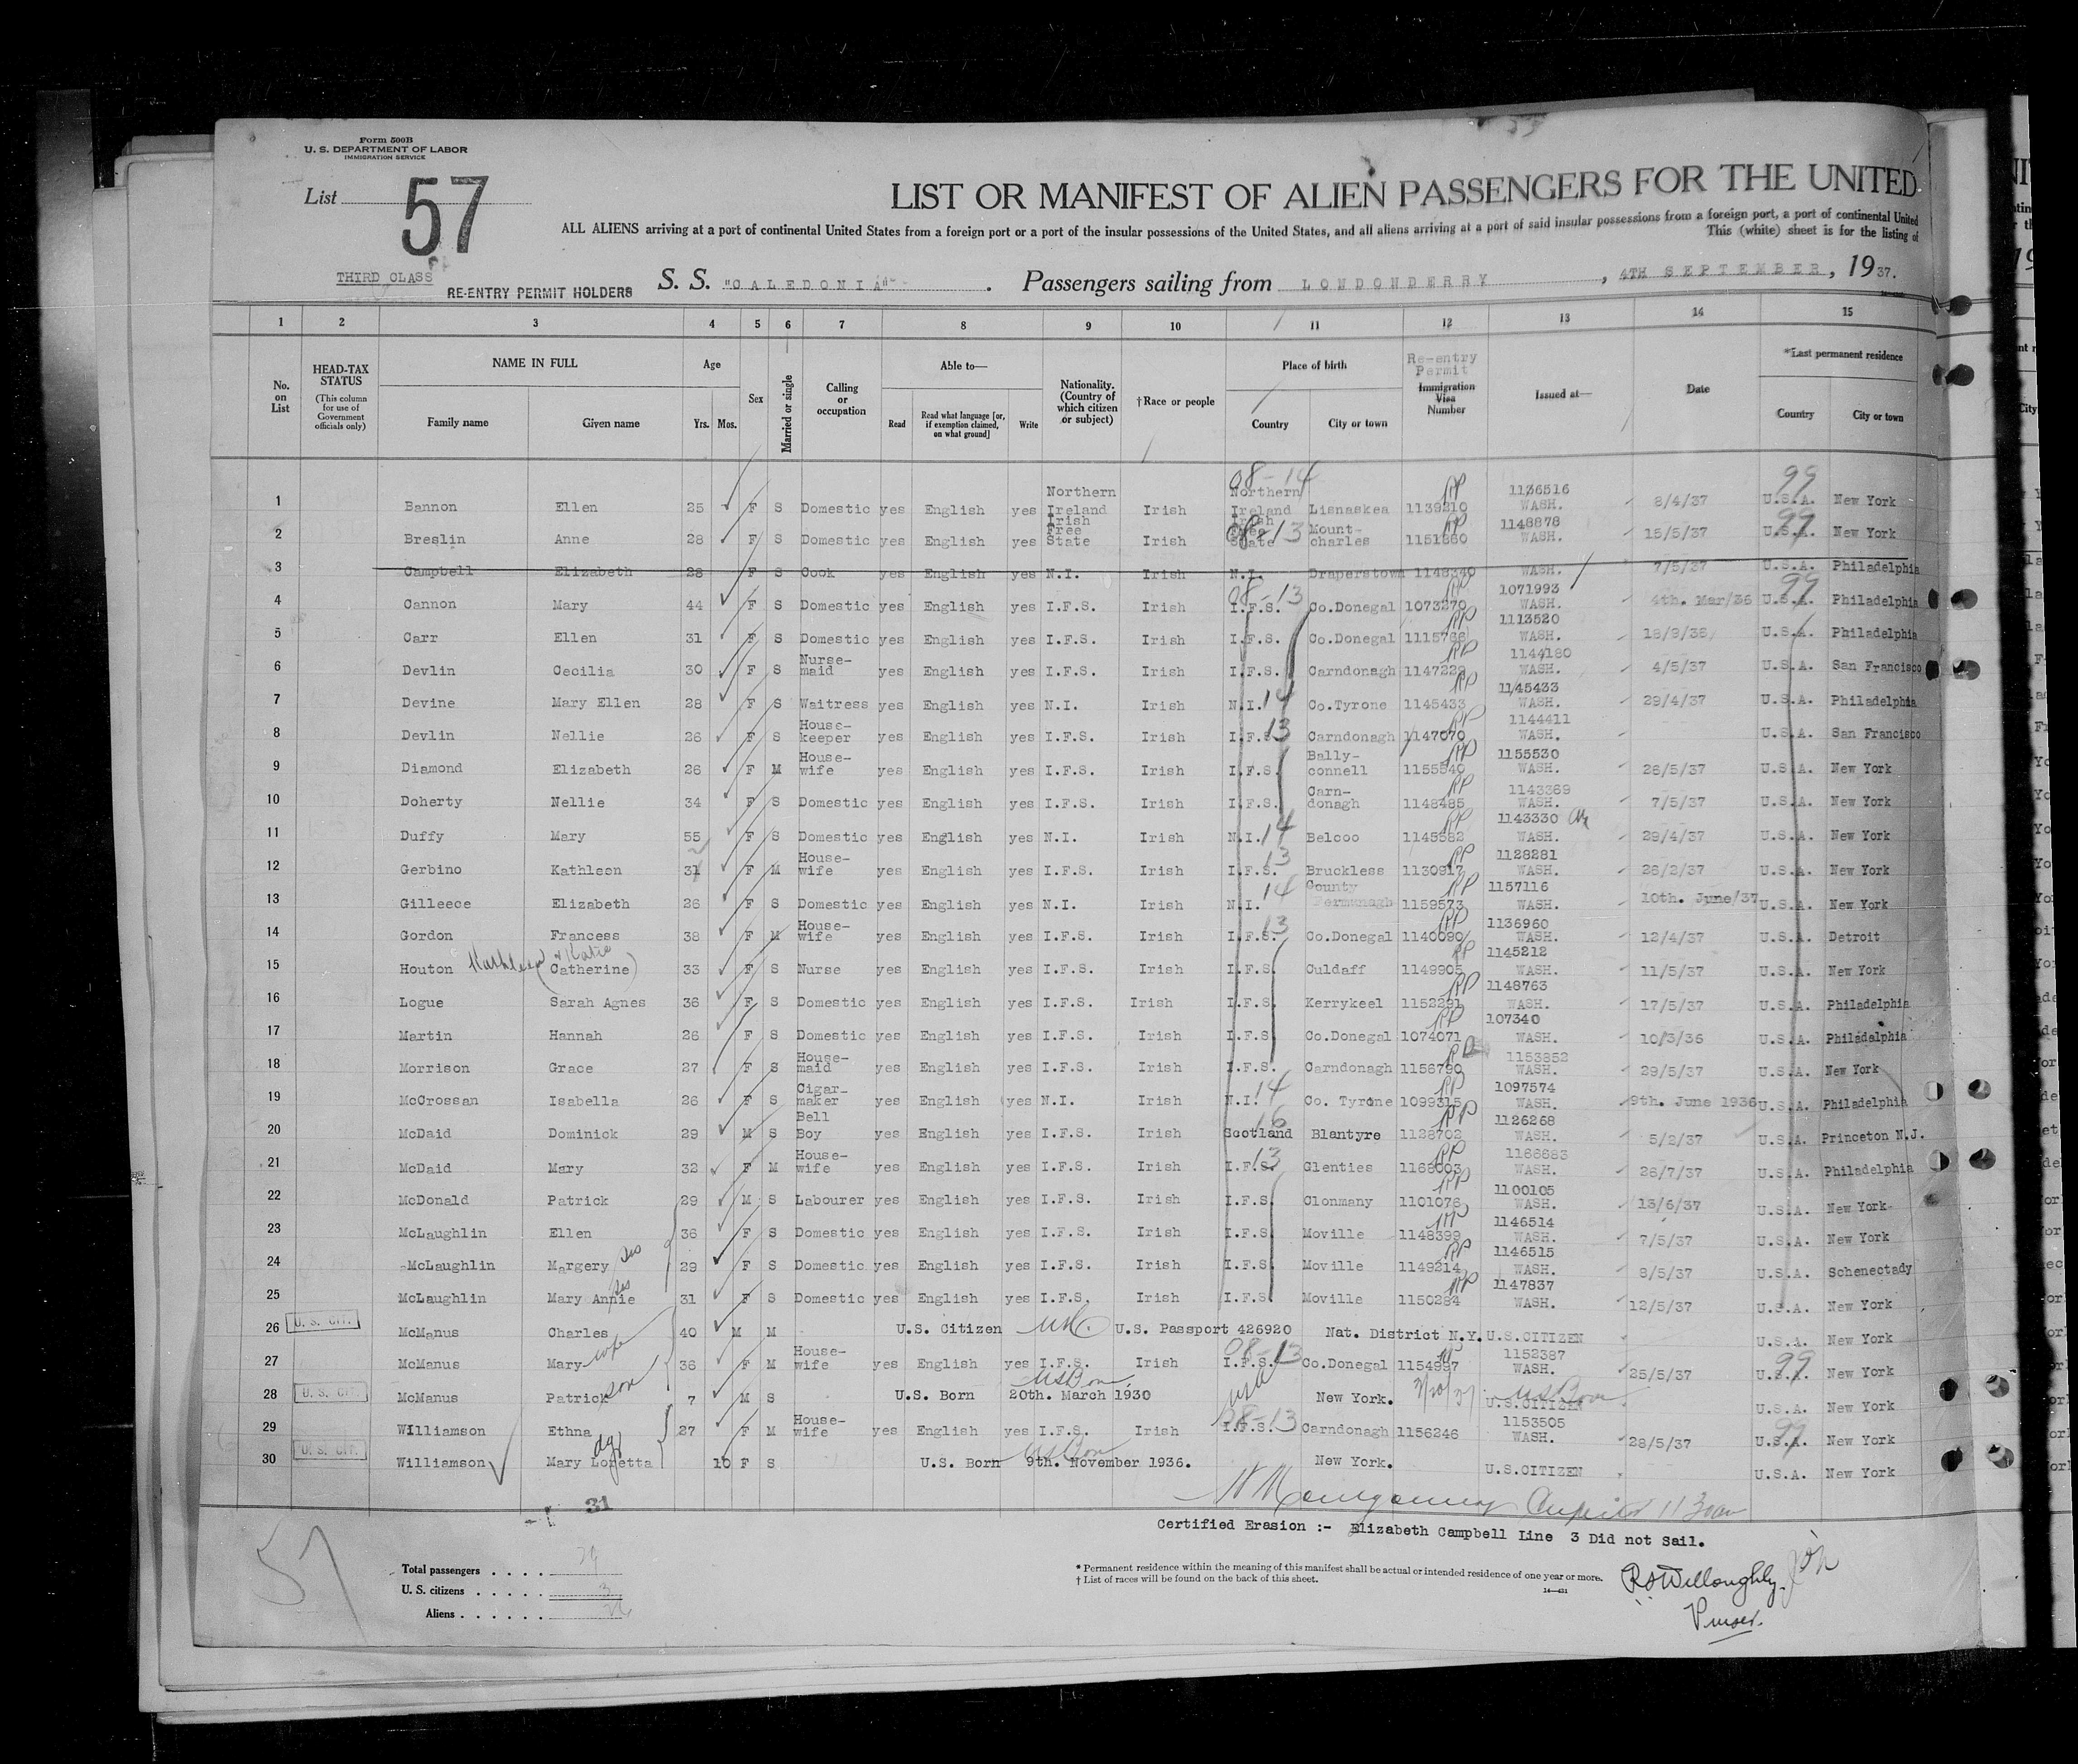 Form 500B
U. S. DEPARTMENT OF LABOR
IMMIGRATION SERVICE
List 57
LIST OR MANIFEST OF ALIEN PASSENGERS FOR THE UNITED
ALL ALIENS arriving at a port of continental United States from a foreign port or a port of the insular possessions of the United States, and all aliens arriving at a port of said insular possessions from a foreign port, a port of continental United
This (white) sheet is for the listing of
THIRD CLASS
RE-ENTRY PERMIT HOLDERS
S. S. "CALEDONIA" . Passengers sailing from LONDONDERRY , 4TH SEPTEMBER, 1937.
1 2 3 4 5 6 7 8 9 10 11 12 13 14 15
No. on List
HEAD-TAX STATUS (This column for use of Government officials only)
NAME IN FULL
Family name Given name
Age
Yrs. Mos.
Sex
Married or single
Calling or occupation
Able to—
Read Read what language [or, if exemption claimed, on what ground] Write
Nationality. (Country of which citizen or subject)
†Race or people
Place of birth
Country City or town
Re-entry Permit
Immigration Visa Number
Issued at—
Date
*Last permanent residence
Country City or town
08-14 99
1 Bannon Ellen 25 F S Domestic yes English yes Northern Ireland Irish Northern Ireland Lisnaskea 1139210 RP 1136516 WASH. 8/4/37 U.S.A. New York
2 Breslin Anne 28 F S Domestic yes English yes Irish Free State Irish Irish Free State 08-13 Mount-charles 1151880 RP 1148878 WASH. 15/5/37 U.S.A. 99 New York
3 Campbell Elizabeth 28 F S Cook yes English yes N.I. Irish N.I. Draperstown 1148340 WASH. 7/5/37 U.S.A. Philadelphia
4 Cannon Mary 44 F S Domestic yes English yes I.F.S. Irish I.F.S. 08-13 Co.Donegal 1073270 RP 1071993 WASH. 4th. Mar/36 U.S.A. 99 Philadelphia
5 Carr Ellen 31 F S Domestic yes English yes I.F.S. Irish I.F.S. Co.Donegal 1115766 RP 1113520 WASH. 18/9/36 U.S.A. Philadelphia
6 Devlin Cecilia 30 F S Nurse-maid yes English yes I.F.S. Irish I.F.S. Carndonagh 1147229 RP 1144180 WASH. 4/5/37 U.S.A. San Francisco
7 Devine Mary Ellen 28 F S Waitress yes English yes N.I. Irish N.I. 14 Co.Tyrone 1145433 RP 1145433 WASH. 29/4/37 U.S.A. Philadelphia
8 Devlin Nellie 26 F S House-keeper yes English yes I.F.S. Irish I.F.S. 13 Carndonagh 1147070 RP 1144411 WASH. U.S.A. San Francisco
9 Diamond Elizabeth 26 F M House-wife yes English yes I.F.S. Irish I.F.S. Bally-connell 1155540 RP 1155530 WASH. 26/5/37 U.S.A. New York
10 Doherty Nellie 34 F S Domestic yes English yes I.F.S. Irish I.F.S. Carn-donagh 1148485 RP 1143369 WASH. 7/5/37 U.S.A. New York
11 Duffy Mary 55 F S Domestic yes English yes N.I. Irish N.I. 14 Belcoo 1145582 RP 1143330 WASH. 29/4/37 U.S.A. New York
12 Gerbino Kathleen 31 F M House-wife yes English yes I.F.S. Irish I.F.S. 13 Bruckless 1130917 RP 1128281 WASH. 26/2/37 U.S.A. New York
13 Gilleece Elizabeth 26 F S Domestic yes English yes N.I. Irish N.I. 14 County Fermanagh 1159573 RP 1157116 WASH. 10th. June/37 U.S.A. New York
14 Gordon Francess 38 F M House-wife yes English yes I.F.S. Irish I.F.S. 13 Co.Donegal 1140090 RP 1136960 WASH. 12/4/37 U.S.A. Detroit
15 Houton Kathleen or Katie (Catherine) 33 F S Nurse yes English yes I.F.S. Irish I.F.S. Culdaff 1149905 RP 1145212 WASH. 11/5/37 U.S.A. New York
16 Logue Sarah Agnes 36 F S Domestic yes English yes I.F.S. Irish I.F.S. Kerrykeel 1152291 RP 1148763 WASH. 17/5/37 U.S.A. Philadelphia
17 Martin Hannah 26 F S Domestic yes English yes I.F.S. Irish I.F.S. Co.Donegal 1074071 RP 107340 WASH. 10/3/36 U.S.A. Philadelphia
18 Morrison Grace 27 F S House-maid yes English yes I.F.S. Irish I.F.S. Carndonagh 1156790 RP 1153852 WASH. 29/5/37 U.S.A. New York
19 McCrossan Isabella 26 F S Cigar-maker yes English yes N.I. Irish N.I. 14 Co. Tyrone 1099315 RP 1097574 WASH. 9th. June 1936 U.S.A. Philadelphia
20 McDaid Dominick 29 M S Bell Boy yes English yes I.F.S. Irish Scotland 16 Blantyre 1128702 RP 1126268 WASH. 5/2/37 U.S.A. Princeton N.J.
21 McDaid Mary 32 F M House-wife yes English yes I.F.S. Irish I.F.S. 13 Glenties 1168003 RP 1166683 WASH. 26/7/37 U.S.A. Philadelphia
22 McDonald Patrick 29 M S Labourer yes English yes I.F.S. Irish I.F.S. Clonmany 1101076 RP 1100105 WASH. 13/6/37 U.S.A. New York
23 McLaughlin Ellen 36 F S Domestic yes English yes I.F.S. Irish I.F.S. Moville 1148399 RP 1146514 WASH. 7/5/37 U.S.A. New York
24 McLaughlin Margery sis 29 F S Domestic yes English yes I.F.S. Irish I.F.S. Moville 1149214 RP 1146515 WASH. 8/5/37 U.S.A. Schenectady
25 McLaughlin Mary Annie sis 31 F S Domestic yes English yes I.F.S. Irish I.F.S. Moville 1150284 RP 1147837 WASH. 12/5/37 U.S.A. New York
26 U. S. CIT. McManus Charles 40 M M U.S. Citizen USC U.S. Passport 426920 Nat. District N.Y. U.S.CITIZEN U.S.A. New York
27 McManus Mary wife 36 F M House-wife yes English yes I.F.S. Irish I.F.S. 08-13 Co.Donegal 1154997 1152387 WASH. 25/5/37 U.S.A. 99 New York
28 U. S. CIT. McManus Patrick son 7 M S U.S. Born 20th. March 1930 US Born USA New York. 3/20/37 US Born U.S.CITIZEN U.S.A. New York
29 Williamson Ethna 27 F M House-wife yes English yes I.F.S. Irish I.F.S. 08-13 Carndonagh 1156246 1153505 WASH. 28/5/37 U.S.A. 99 New York
30 U. S. CIT. Williamson Mary Loretta dg 10 F S U.S. Born 9th. November 1936. US Born New York. U.S.CITIZEN U.S.A. New York
31
Certified Erasion :- Elizabeth Campbell Line 3 Did not Sail.
57
Total passengers . . . . 29
U. S. citizens . . . . . 3
Aliens . . . . . . 26
* Permanent residence within the meaning of this manifest shall be actual or intended residence of one year or more.
† List of races will be found on the back of this sheet.
14—431
RSWilloughby.
Purser.